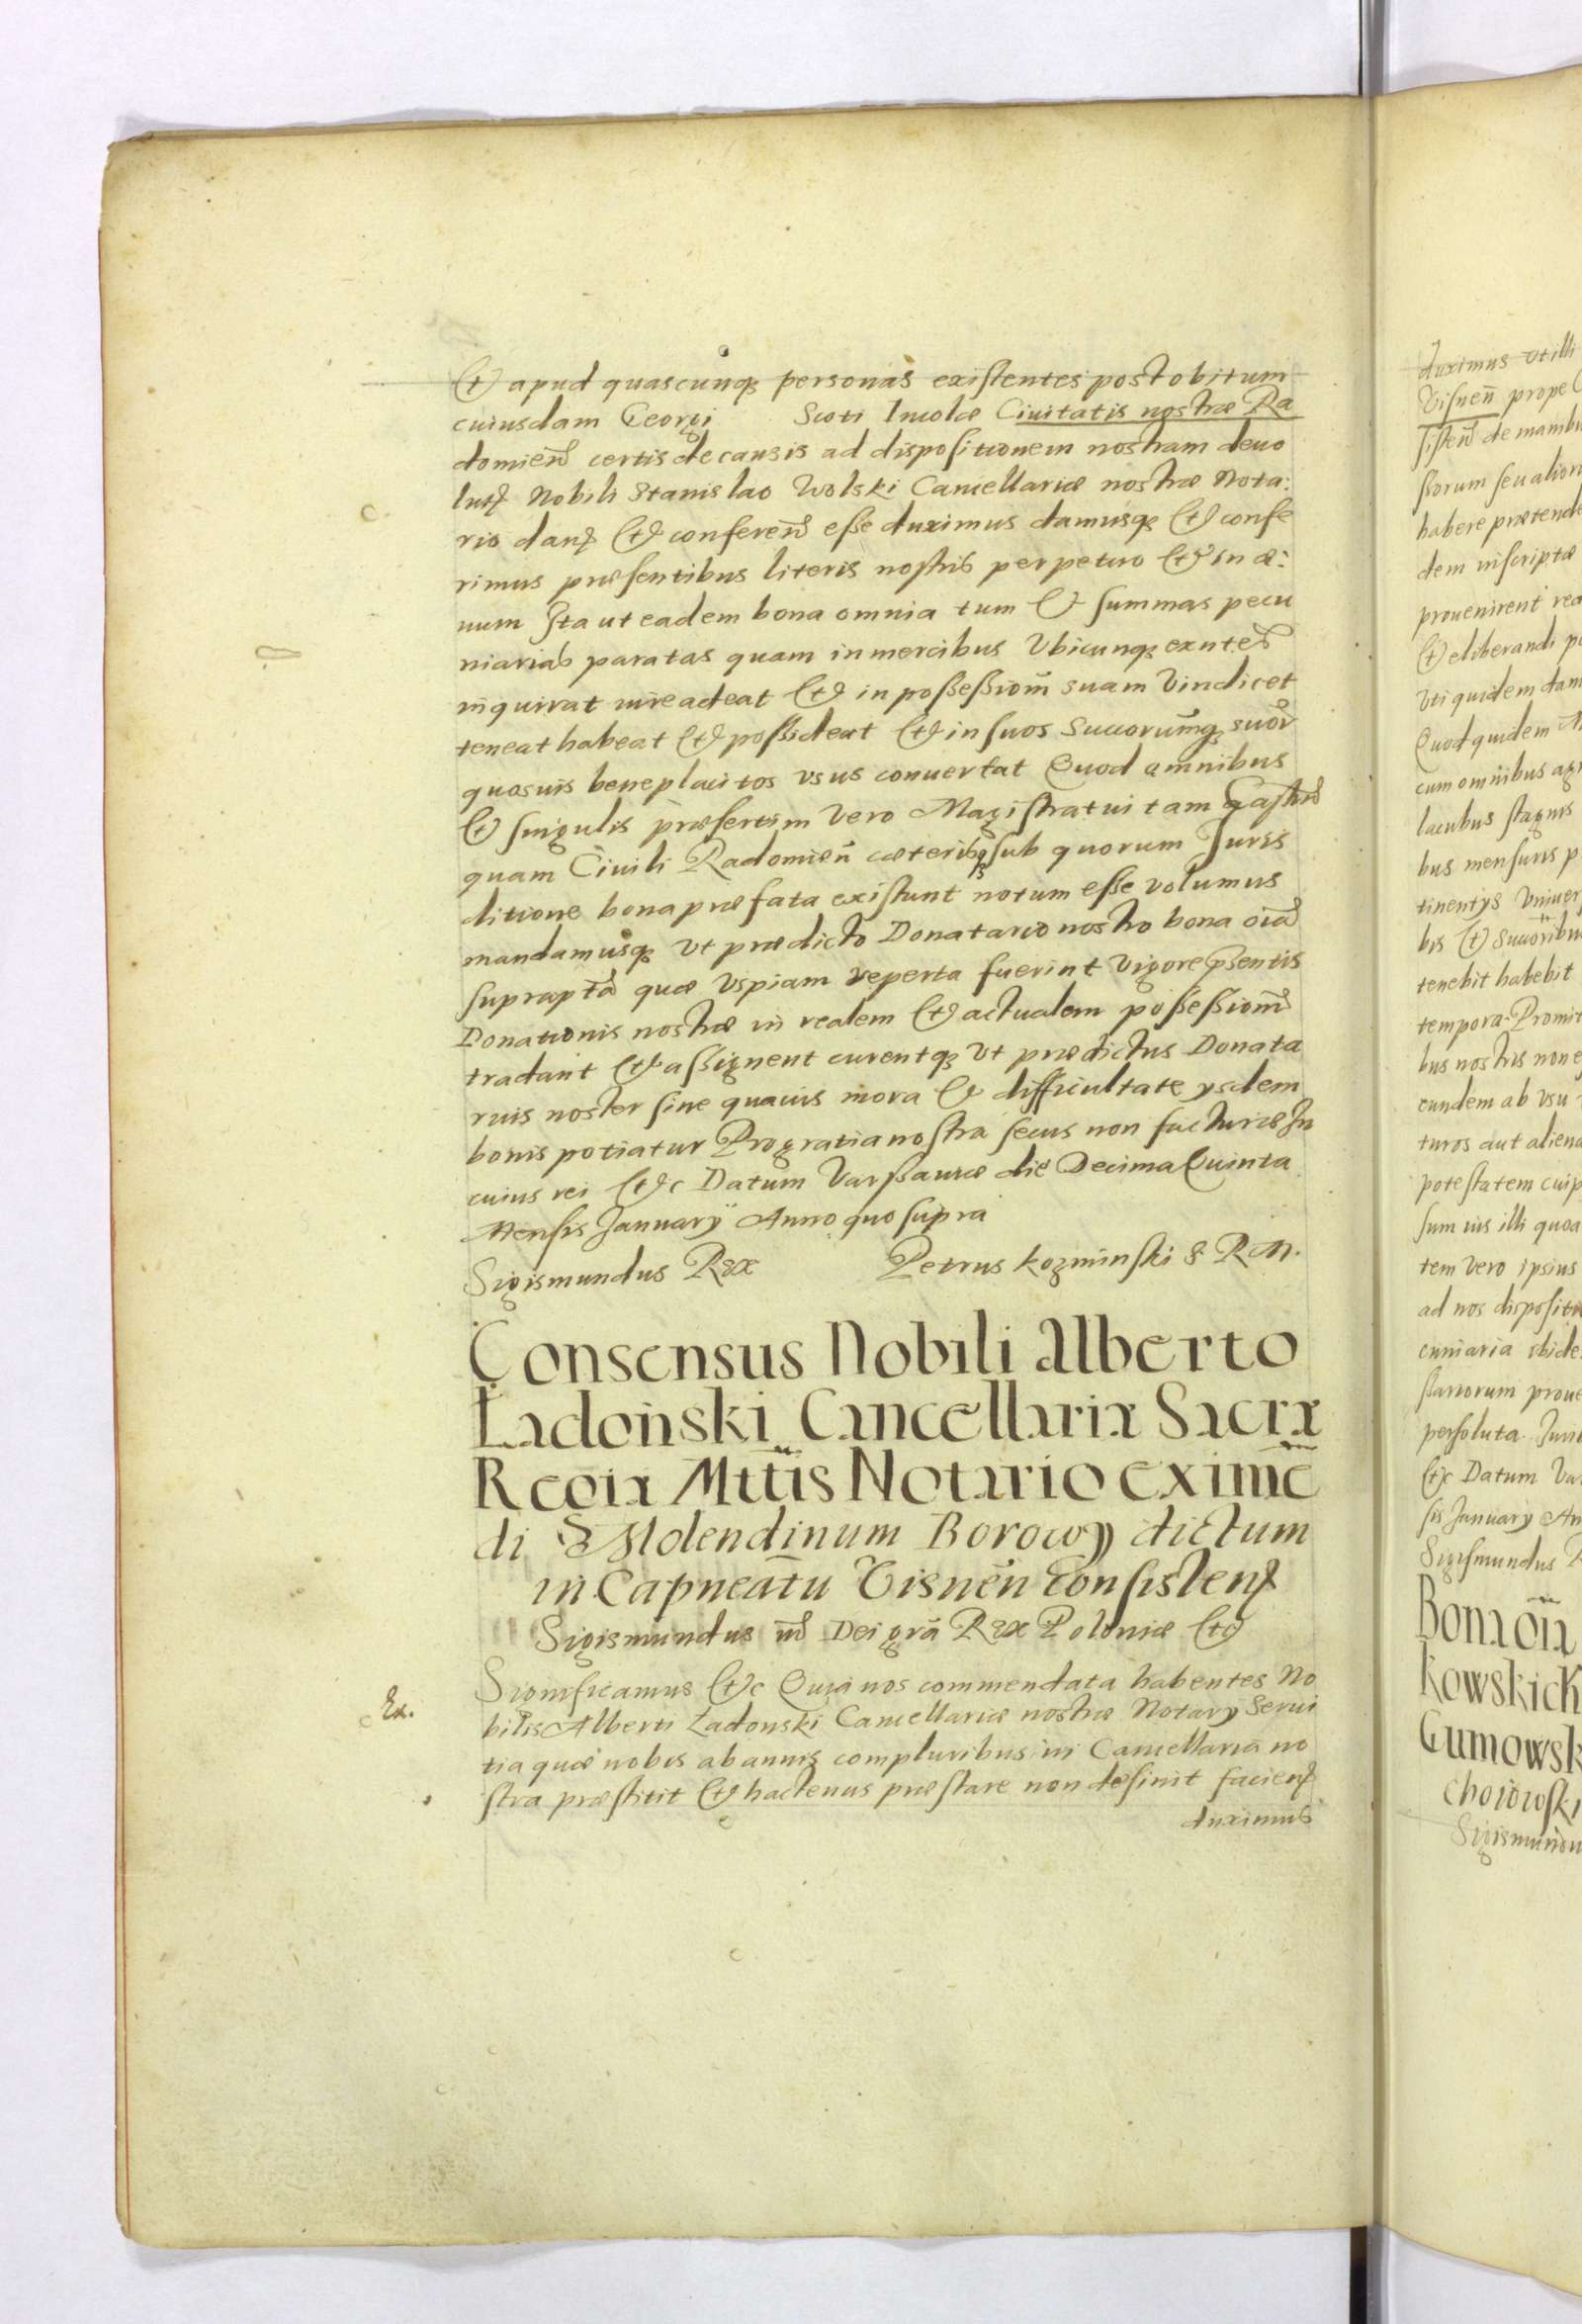 Et apud quascunq; personas existentes post obitum
cuiusdam Georgi Scoti Incolæ Ciuitatis nostræ Ra
domien̄ certis de causis ad dispositionem nostram deuo
lut; Nobili Stanislao Wolski Cancellariæ nostræ Nota:
rio dan; Et conferen̄ esse duximus damusq; Et confe
rimus præsentibus literis nostris perpetuo Et in æ:
uum Ita ut eadem bona omnia tum Et summas pecu
niarias paratas quam in mercibus Vbicunq; exn̄tes
inquirat iure adeat Et in possessiom̄ suam Vindicet
teneat habeat Et possideat Et in suos Succorum̄q; suor̄
quosuis beneplacitos vsus conuertat Quod omnibus
Et singulis præsertim Vero Magistratui tam Castrēn
quam Ciuili Radomien̄ cæterisq; sub quorum Juris
ditione bona præfata existunt notum esse volumus
mandamusq; vt prædicto Donatario nostro bona oīa
suprapta quæ Vspiam reperta fuerint Vigore p̄sentis
Donationis nostræ in realem Et actualem possessiom̄
tradant Et assignent curentq; Vt prædictus Donata
rius noster sine quauis mora Et difficultate ysdem
bonis potiatur Pro gratia nostra secus non facturi In
cuius rei Etc Datum Varssauiæ die Decima Quinta
Mensis January Anno quo supra
Sigismundus Rex Petrus Kozminski S R M.
Consensus Nobili Alberto
Ladonski Cancellariæ Sacræ
Regiæ Mttis Notario eximē
di Molendinum Borowy dictum
in Capneātu Visnēn consisten;
Sigismundus iii Dei grā Rex Poloniæ Etc
Significamus Etc Quia nos commendata habentes No
Ex.
bilis Alberti Ladonski Cancellariæ nostræ Notary Serui
tia quæ nobis ab annis compluribus in Cancellaria no
stra præstitit Et hactenus præstare non desinit facien;
duximus
duximus vt illi
Visnen̄ prope
sisten̄ de manibu
ssorum seu alior
habere prætende
dem inscriptæ
prouenirent rea
Et eliberandi po
Vti quidem dam
Quod quidem M
cum omnibus agr
lacubus stagnis
bus mensuris p
tinentys Vniuer
bis Et Succoribu
tenebit habebit
tempora. Promit
bus nostris non e
eundem ab vsu
turos aut aliena
potestatem cuip
sum ius illi quoa
tem Vero ipsius
ad nos dispositi
cuniaria ibide
ssariorum proue
persoluta. Juri
Etc Datum Va
sis January An
Sigismundus R
Bona oīa
Kowskich
Gumowsk
Choiowski
Sigismundu